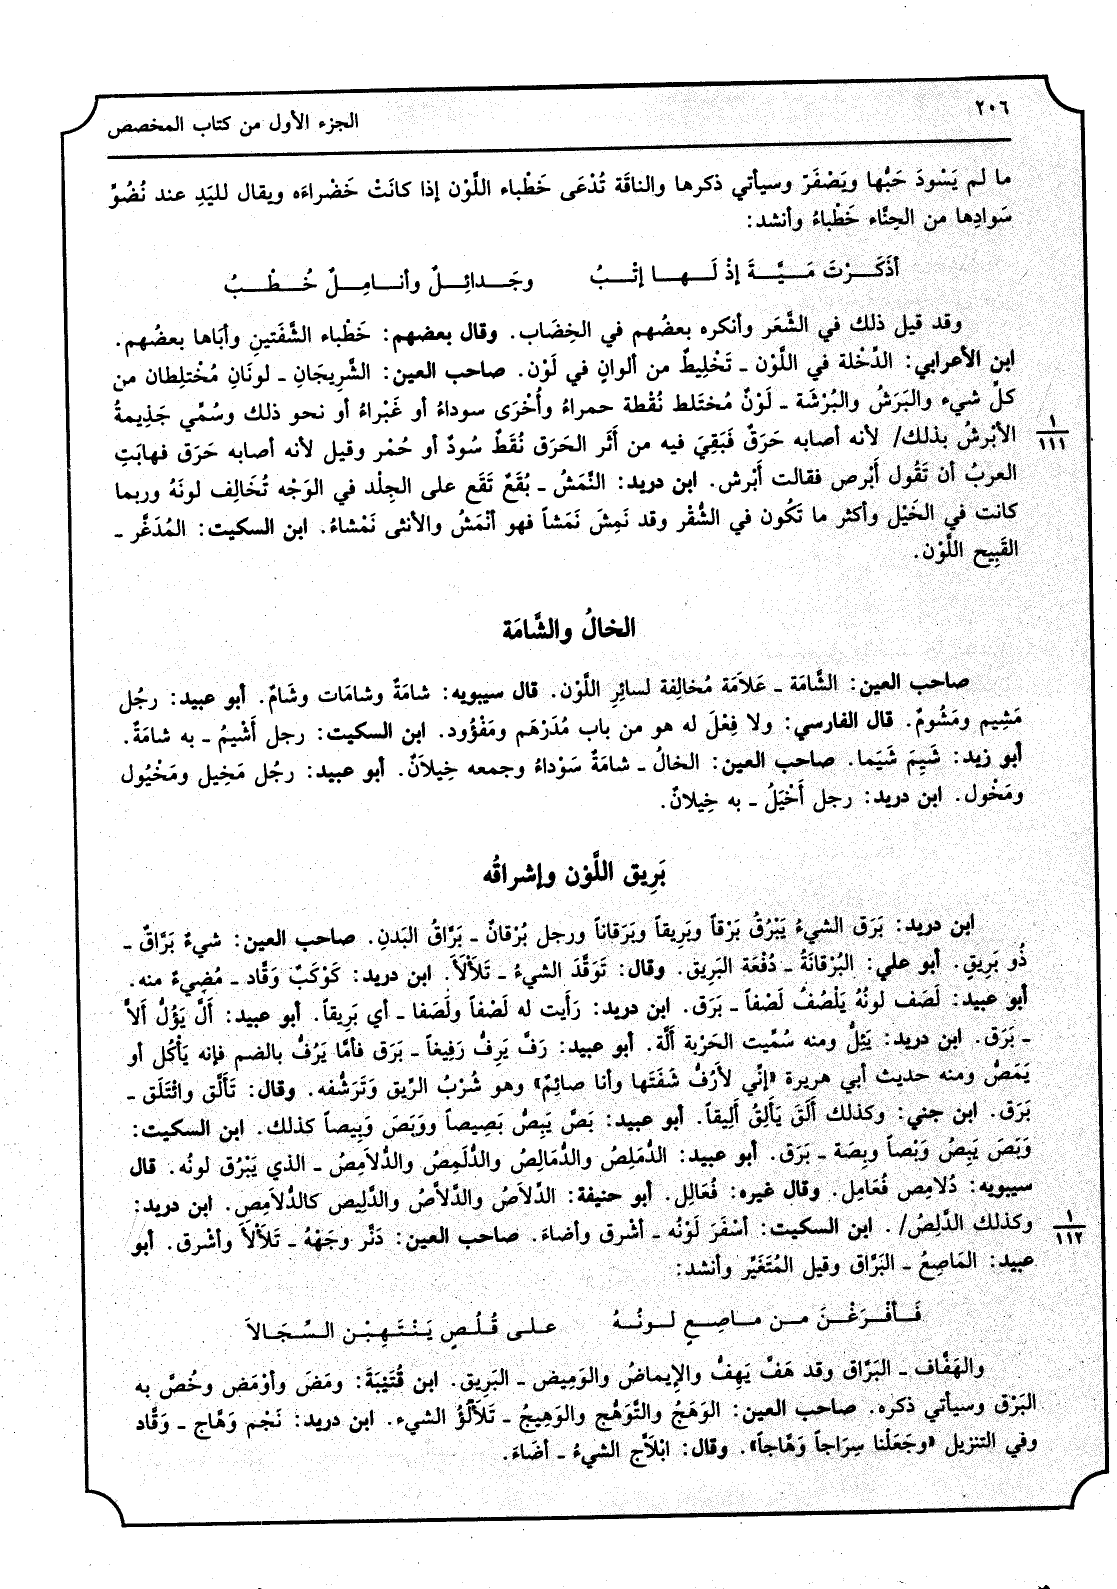 ٢٠٦
الجزء الأول من كتاب المخصص
ما لم يَسْودَ حَبُّها ويَصْفَرّ وسيأتي ذكرها والناقَة تُدْعَى خَطْباء اللَّوْن إذا كانَتْ خَضْراءَه ويقال لليَدِ عند نُضُوِّ
سَوادِها من الحِنَّاء خَطْباءُ وأنشد:
أذَكَرْتَ مَيَّةَ إذْ لَها إتْبُ وجَدائِلٌ وأنامِلٌ خُطْبُ
وقد قيل ذلك في الشَّعَر وأنكره بعضُهم في الخِضَاب. وقال بعضهم: خَطْباء الشَّفَتينِ وأبَاها بعضُهم.
ابن الأعرابي: الدَّخْلة في اللَّوْن ـ تَخْلِيطٌ من ألوانٍ في لَوْن. صاحب العين: الشَّرِيجَانِ ـ لونَانِ مُخْتلِطان من
كلِّ شيء والبَرَشُ والبُرْشَة ـ لَوْنٌ مُختَلط نُقْطة حمراءُ وأُخْرَى سوداءُ أو غَبْراءُ أو نحو ذلك وسُمِّي جَذِيمةُ
الأبْرشُ بذلك/ لأنه أصابه حَرَقٌ فَبَقِيَ فيه من أثَر الحَرَق نُقَطٌ سُودٌ أو حُمْر وقيل لأنه أصابه حَرَق فهابَتِ
١
١١١
العربُ أن تَقُول أَبْرص فقالت أَبْرش. ابن دريد: النَّمَشُ ـ بُقَعٌ تَقَع على الجِلْد في الوَجْه تُخَالِف لونَهُ وربما
كانت في الخَيْل وأكثر ما تَكُون في الشُّقْر وقد نَمِشَ نَمَشاً فهو أنْمَشُ والأنثى نَمْشاءُ. ابن السكيت: المُدَغَّر ـ
القَبِيح اللَّوْن.
الخالُ والشَّامَة
صاحب العين: الشَّامَة ـ عَلاَمَة مُخالِفة لسائِرِ اللَّوْن. قال سيبويه: شامَةٌ وشامَات وشَامٌ. أبو عبيد: رجُل
مَشِيم ومَشُومٌ. قال الفارسي: ولا فِعْلَ له هو من باب مُدَرْهَم ومَفْؤُود. ابن السكيت: رجل أَشْيمُ ـ به شامَةٌ.
أبو زيد: شَيِمَ شَيَما. صاحب العين: الخالُ ـ شامَةٌ سَوْداءُ وجمعه خِيلاَنٌ. أبو عبيد: رجُل مَخِيل ومَخْيُول
ومَخْول. ابن دريد: رجل أَخْيَلُ ـ به خِيلانٌ.
بَرِيق اللَّوْن وإشراقُه
ابن دريد: بَرَق الشيءُ يَبْرُقُ بَرْقاً وبَرِيقاً وبَرَقاناً ورجل بُرْقانٌ ـ بَرَّاقُ البَدنِ. صاحب العين: شيءٌ بَرَّاقٌ ـ
ذُو بَرِيقٍ. أبو علي: البُرْقانَةُ ـ دُفْعَة البَرِيق. وقال: تَوَقَّدَ الشيءُ ـ تَلأْلأَ. ابن دريد: كَوْكَبٌ وَقَّاد ـ مُضِيءٌ منه.
أبو عبيد: لَصَف لونُهُ يَلْصُفُ لَصْفاً ـ بَرَق. ابن دريد: رَأَيت له لَصْفاً ولَصَفا ـ أي بَرِيقاً. أبو عبيد: أَلَّ يَؤُلُّ أَلاَّ
ـ بَرَق. ابن دريد: يَئِلُّ ومنه سُمِّيت الحَرْبة أَلَّة. أبو عبيد: رَفَّ يَرِفُّ رَفِيفاً ـ بَرَق فأمَّا يَرُفُّ بالضم فإنه يَأْكُل أو
يَمَصُّ ومنه حديث أبي هريرة «إنِّي لأَرُفُّ شَفَتَها وأنا صائِمٌ» وهو شُرْبُ الرِّيق وَتَرَشُّفه. وقال: تَأَلَّق وائْتَلَق ـ
بَرَق. ابن جني: وكذلك أَلَقَ يَأْلِقُ أَلِيقاً. أبو عبيد: بَصَّ يَبِصُّ بَصِيصاً ووَبَصَ وَبِيصاً كذلك. ابن السكيت:
وَبَصَ يَبِصُ وَبْصاً وبِصَة ـ بَرَق. أبو عبيد: الدُّمَلِصُ والدُّمَالِصُ والدُّلَمِصُ والدُّلاَمِصُ ـ الذي يَبْرُق لونُه. قال
سيبويه: دُلامِص فُعَامِل. وقال غيره: فُعَالِل. أبو حنيفة: الدِّلاَصُ والدَّلاَّصُ والدَّلِيص كالدُّلاَمِص. ابن دريد:
وكذلك الدَّلِصُ/ . ابن السكيت: أسْفَرَ لَوْنُه ـ أشْرق وأضاءَ. صاحب العين: دَنَّر وجَهْهُ ـ تَلأْلأَ وأشْرق. أبو
١
١١٢
عبيد: المَاصِعُ ـ البَرَّاق وقيل المُتَغَيِّر وأنشد:
فَأفْرَغْنَ من ماصِعٍ لونُهُ على قُلُصٍ يَنْتَهِبْن السِّجَالاَ
والهَفَّاف ـ البَرَّاق وقد هَفَّ يَهِفُّ والإيماضُ والوَمِيض ـ البَرِيق. ابن قُتَيْبَةَ: ومَضَ وأوْمَض وخُصَّ به
البَرْق وسيأتي ذكره. صاحب العين: الوَهَجُ والتَّوَهُّج والوَهِيجُ ـ تَلأْلُؤُ الشيء. ابن دريد: نَجْم وَهَّاج ـ وَقَّاد
وفي التنزيل «وجَعَلْنا سِرَاجاً وَهَّاجاً». وقال: ابْلاَجَّ الشيءُ ـ أضَاءَ.